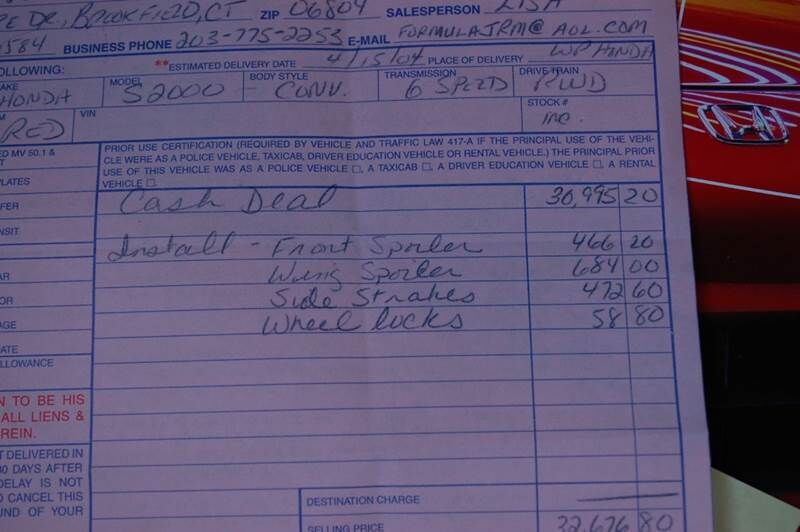 DR, BROOKFIELD, CT ZIP 06804 SALESPERSON LISA
584 BUSINESS PHONE 203-775-2253 E-MAIL FORMULAJRM@AOL.COM
OLLOWING: **ESTIMATED DELIVERY DATE 4/15/04 PLACE OF DELIVERY WP HONDA
AKE HONDA MODEL S2000 BODY STYLE CONV. TRANSMISSION 6 SPEED DRIVE TRAIN RWD
RED VIN STOCK # INC.
ED MV 50.1 & PRIOR USE CERTIFICATION (REQUIRED BY VEHICLE AND TRAFFIC LAW 417-A IF THE PRINCIPAL USE OF THE VEHI-
CLE WERE AS A POLICE VEHICLE, TAXICAB, DRIVER EDUCATION VEHICLE OR RENTAL VEHICLE.) THE PRINCIPAL PRIOR
USE OF THIS VEHICLE WAS AS A POLICE VEHICLE ☐, A TAXICAB ☐, A DRIVER EDUCATION VEHICLE ☐, A RENTAL
LATES VEHICLE ☐.
FER Cash Deal 30,995 20
NSIT
Install - Front Spoiler 466 20
AR Wing Spoiler 684 00
OR Side Strakes 472 60
AGE Wheel locks 58 80
ATE
LLOWANCE
N TO BE HIS
ALL LIENS &
REIN.
T DELIVERED IN
30 DAYS AFTER
DELAY IS NOT
O CANCEL THIS
UND OF YOUR
DESTINATION CHARGE
SELLING PRICE 32,676 80